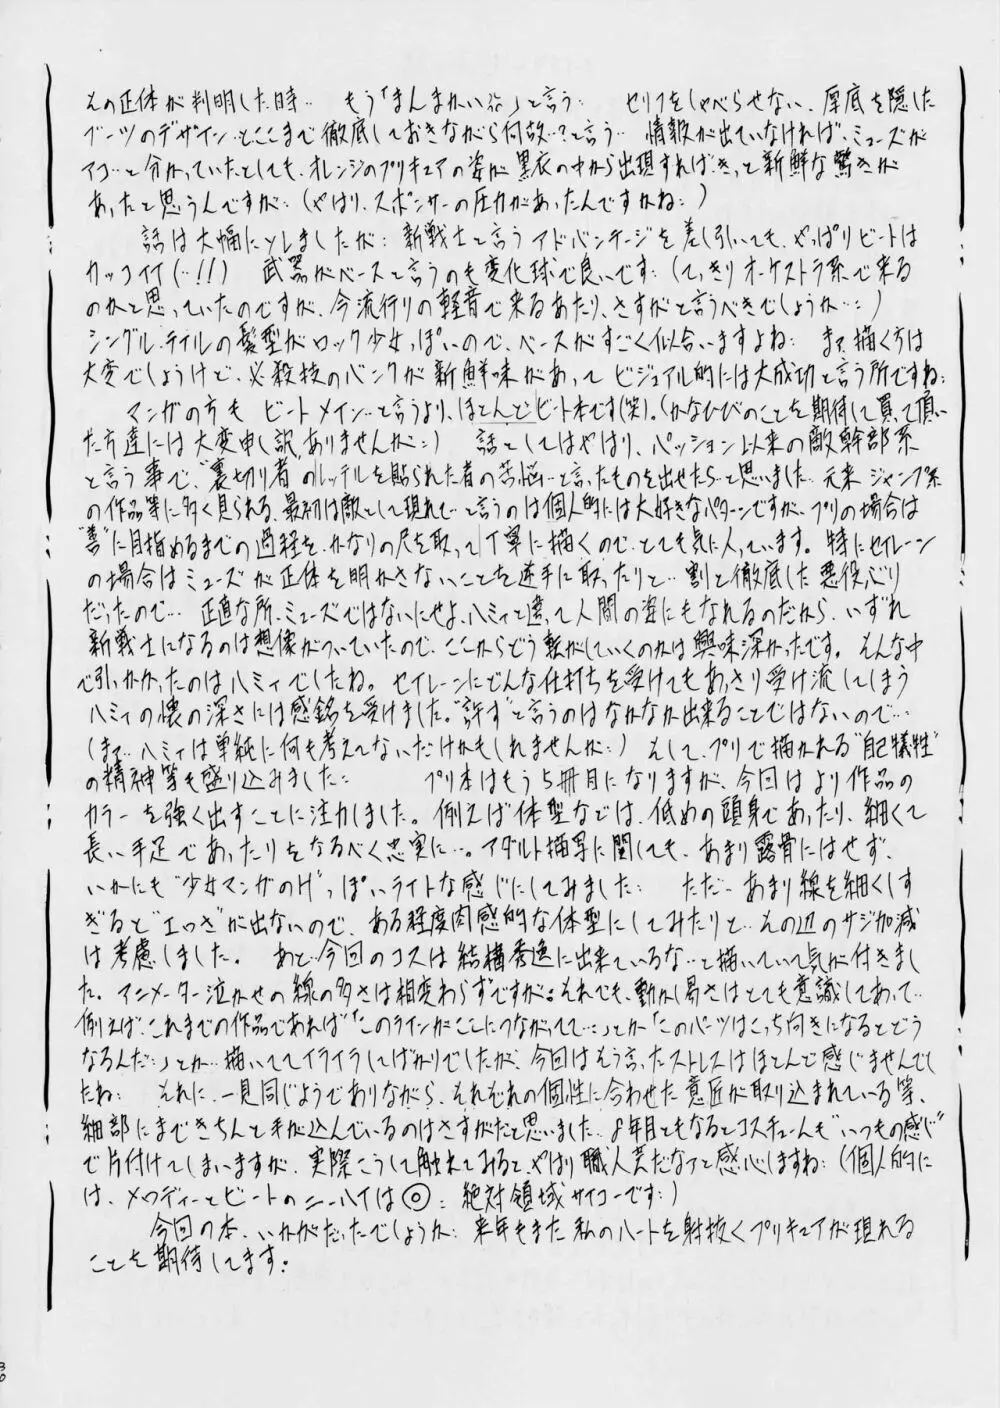 その正体が判明した時… もう「まんまかい!!」と言う… セリフをしゃべらせない、厚底を隠した
ブーツのデザイン…とここまで徹底しておきながら何故…?と言う… 情報が出ていなければ、ミューズが
アコ…と分かっていたとしても、オレンジのプリキュアの姿が黒衣の中から出現すれば、きっと新鮮な驚きが
あったと思うんですが…(やはり、スポンサーの圧力があったんですかね…)
話は大幅にソレましたが…新戦士と言うアドバンテージを差し引いても、やっぱりビートは
カッコイイ(…!!) 武器がベースと言うのも変化球で良いです…(てっきりオーケストラ系で来る
のかと思っていたのですが、今流行りの軽音で来るあたり、さすがと言うべきでしょうか…)
シングルテイルの髪型がロック少女っぽいので、ベースがすごく似合いますよね… まぁ、描く方は
大変でしょうけど、必殺技のバンクが新鮮味があってビジュアル的には大成功と言う所ですね…
マンガの方も ビートメイン…と言うより、ほとんどビート本です(笑)。(かなひびのことを期待して買って頂い
た方達には大変申し訳ありませんが…) 話としてはやはり、パッション以来の敵幹部系
と言う事で、“裏切り者”のレッテルを貼られた者の苦悩…と言ったものを出せたら…と思いました… 元来ジャンプ系
の作品等に多く見られる、最初は敵として現れて…と言うのは個人的には大好きなパターンですが、プリの場合は
“善”に目指めるまでの過程を、かなりの尺を取って丁寧に描くので、とても気に入っています。特にセイレーン
の場合はミューズが正体を明かさないことを逆手に取ったりと…割と徹底した悪役ぶり
だったので… 正直な所、ミューズではないにせよ、ハミィと違って人間の姿にもなれるのだから、いずれ
新戦士になるのは想像がついていたので、ここからどう転がしていくのかは興味深かったです。そんな中
で引っかかったのはハミィでしたね。セイレーンにどんな仕打ちを受けてもあっさり受け流してしまう
ハミィの懐の深さには感銘を受けました。“許す”と言うのはなかなか出来ることではないので…
(まぁ…ハミィは単純に何も考えてないだけかもしれませんが…) そして、プリで描かれる“自己犠牲”
の精神等も盛り込みました… プリ本はもう5冊目になりますが、今回はより作品の
カラーを強く出すことに注力しました。例えば体型などは、低めの頭身であったり、細くて
長い手足であったりをなるべく忠実に…。アダルト描写に関しても、あまり露骨にはせず、
いかにも“少女マンガのH”っぽいライトな感じにしてみました… ただ…あまり線を細くしす
ぎると“エっさ”が出ないので、ある程度肉感的な体型にしてみたりと…その辺のサジ加減
は考慮しました。 あと…今回のコスは結構秀逸に出来ているな…と描いていて気が付きまし
た。アニメーター泣かせの線の多さは相変わらずですが…それでも、動かし易さはとても意識してあって…
例えば、これまでの作品であれば「このラインがここにつながってて…」とか「このパーツはこっち向きになるとどう
なるんだ…」とか…描いててイライラしてばかりでしたが、今回はそう言ったストレスはほとんど感じませんでし
たね… それに、一見同じようでありながら、それぞれの個性に合わせた意匠が取り込まれている等、
細部にまできちんと手が込んでいるのはさすがだと思いました… 8年目ともなるとコスチュームも“いつもの感じ”
で片付けてしまいますが、実際こうして触れてみると、やはり職人芸だなァと感心しますね…(個人的に
は、メロディーとビートのニーハイは◎…絶対領域サイコーです…)
今回の本、いかがだったでしょうか… 来年もまた私のハートを射抜くプリキュアが現れる
ことを期待してます…
30